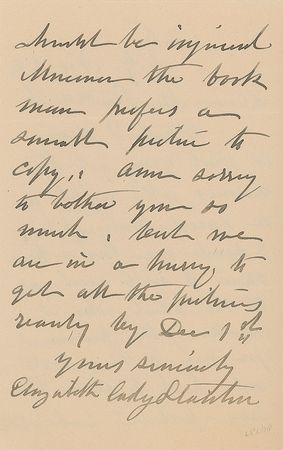 should be injured
Moreover the book
man prefers a
small picture to
copy,. am sorry
to bother you so
much, but we
are in a hurry, to
get all the pictures
ready by Dec 1st
yours sincerely
Elizabeth Cady Stanton